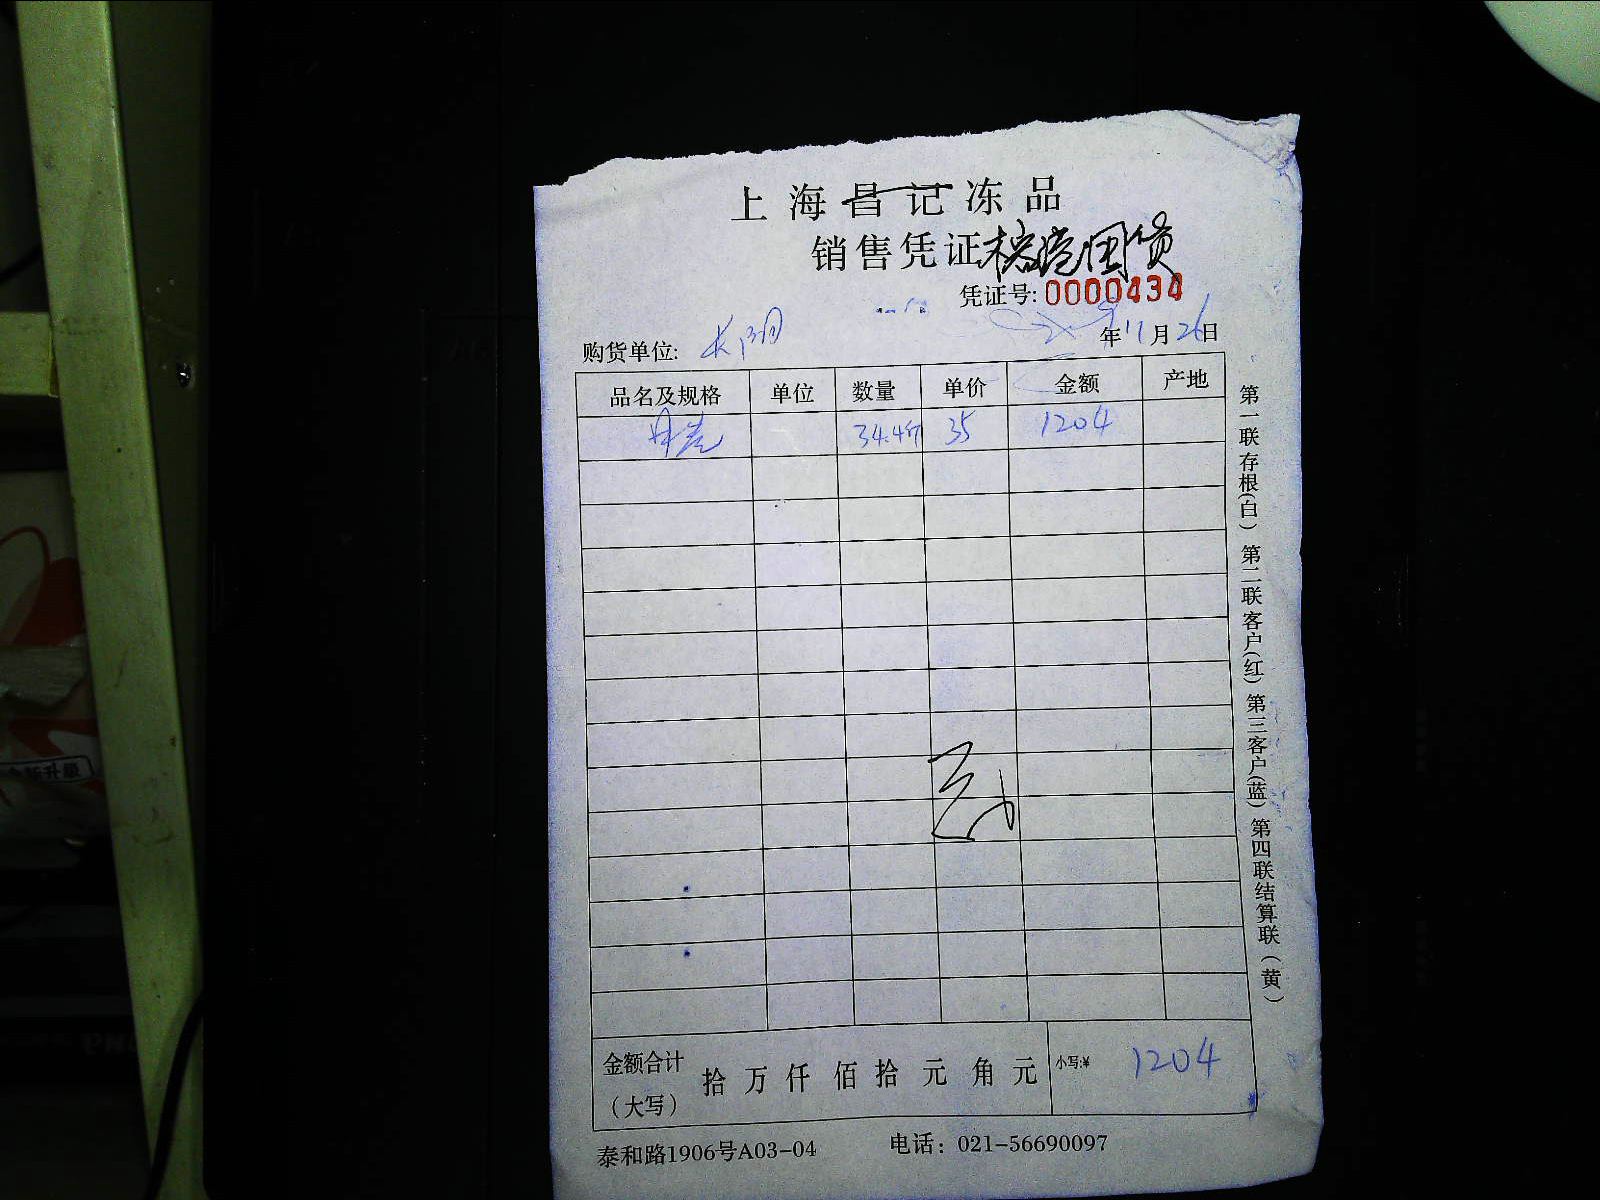 上海昌记冻品
销售凭证
凭证号: 0000434
购货单位: 年11月26日
品名及规格 单位 数量 单价 金额 产地
34.4斤 35 1204
金额合计（大写） 拾万仟佰拾元角元 小写:¥ 1204
泰和路1906号A03-04 电话：021-56690097
第一联存根（白）第二联客户（红）第三客户（蓝）第四联结算联（黄）
新升级